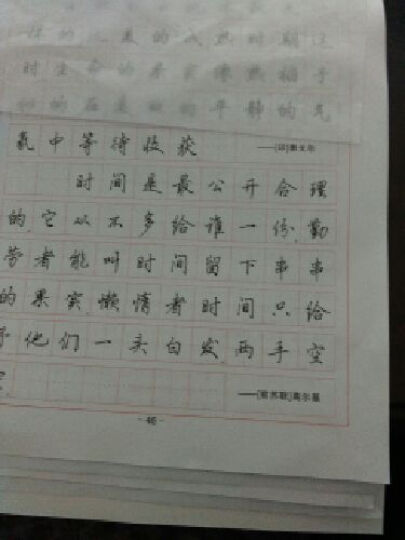 样的优美的成熟时期
时生命的果实像熟稻子
的平静的气
氛中等待收获 ——[印]泰戈尔
时间是最公开合理
的,它从不多给谁一份,勤
劳者能叫时间留下串串
的果实,懒惰者时间只给
予他们一头白发,两手空
——[前苏联]高尔基
- 46 -